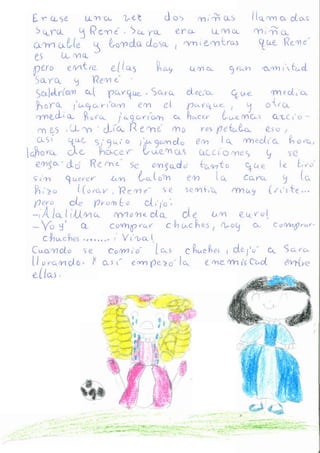 Erase una vez dos niñas llamadas
Sara y René. Sara era una niña
amable y bondadosa, mientras que René
es una
pero entre ellas hay una gran amistad
Sara y René
Saldrían al parque. Sara decía que media
hora jugarían en el parque, y otra
media hora jugarían a hacer buenas accio-
nes. Un día René no respetaba eso,
así que siguió jugando en la media hora,
la hora de hacer buenas acciones y se
enga-dó René se engadó tanto que le tiró
sin querer un balón en la cara y la
hizo llorar. René se sentía muy triste...
pero de pronto dijo:
-¡Alalillna moneda de un euro!
-Voy a comprar chuches, voy a comprar
chuches........ ¡Viva!
Cuando se comió las chuches, dejó a Sara
llorando. Y así empezó la enemistad entre
ellas.